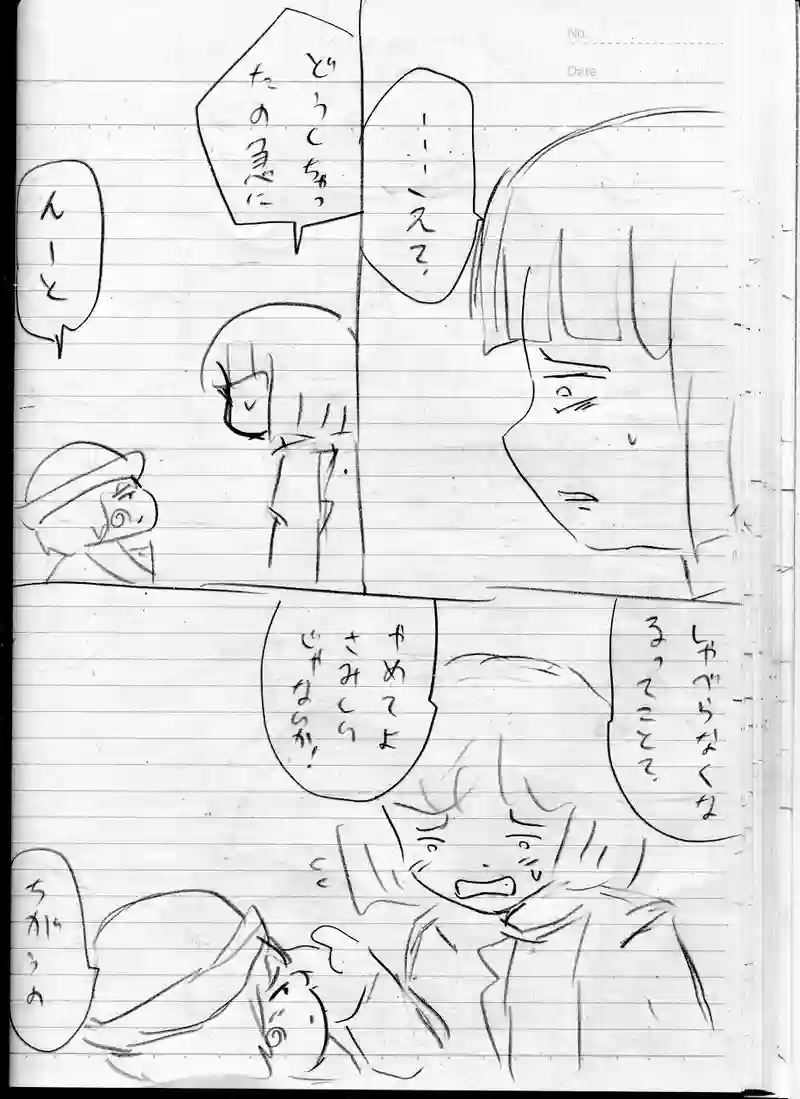 No.
Date
どうしちゃっ
たの急に
んーと
しゃべらなくな
るってこと?
やめてよ
さみしい
じゃないか!
ちがうの